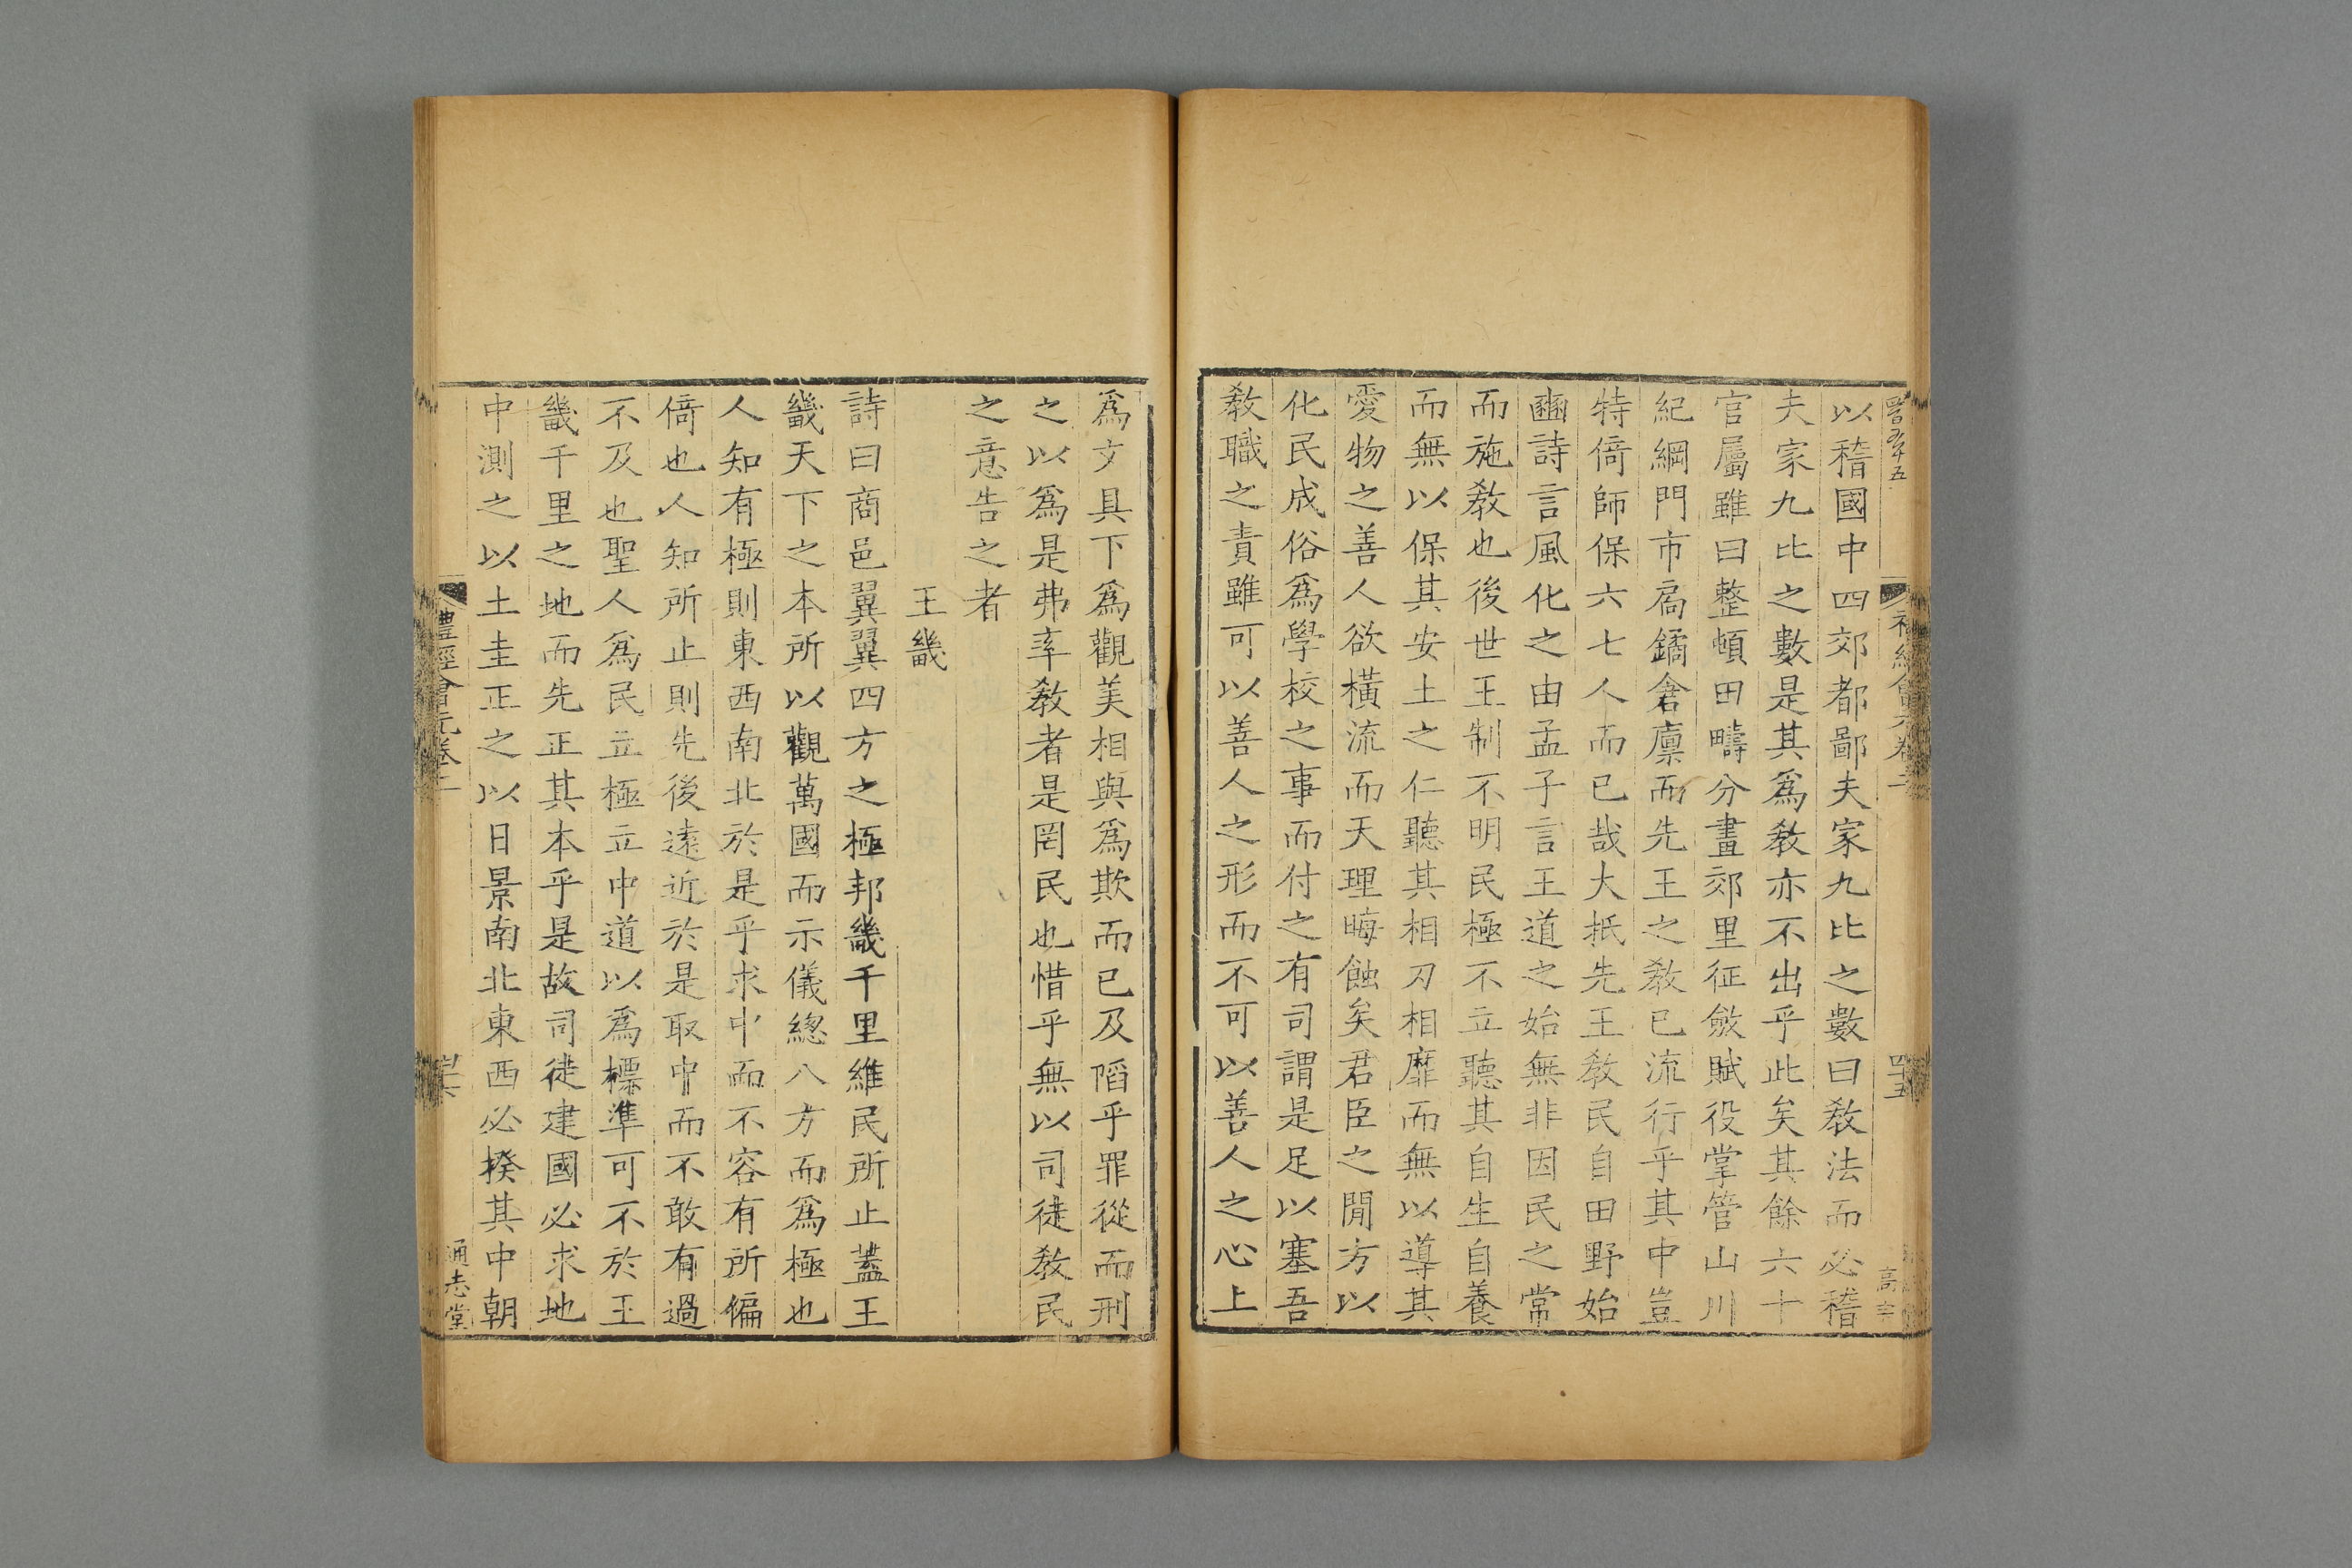 以稽國中四郊都鄙夫家九比之數曰教法而必稽
夫家九比之數是其爲教亦不出乎此矣其餘六十
官屬雖曰整頓田疇分畫郊里征斂賦役掌管山川
紀綱門市扄鐍倉廪而先王之教已流行乎其中豈
特倚師保六七人而已哉大抵先王教民自田野始
豳詩言風化之由孟子言王道之始無非因民之常
而施教也後世王制不明民極不立聽其自生自養
而無以保其安土之仁聽其相刃相靡而無以導其
愛物之善人欲橫流而天理晦蝕矣君臣之閒方以
化民成俗爲學校之事而付之有司謂是足以塞吾
教職之責雖可以善人之形而不可以善人之心上
爲文具下爲觀美相與爲欺而已及陷乎罪從而刑
之以爲是弗率教者是罔民也惜乎無以司徒教民
之意告之者
王畿
詩曰商邑翼翼四方之極邦畿千里維民所止蓋王
畿天下之本所以觀萬國而示儀緫八方而爲極也
人知有極則東西南北於是乎求中而不容有所偏
倚也人知所止則先後遠近於是取中而不敢有過
不及也聖人爲民立極立中道以爲標準可不於王
畿千里之地而先正其本乎是故司徒建國必求地
中測之以土圭正之以日景南北東西必揆其中朝
禮經會元卷二
通志堂